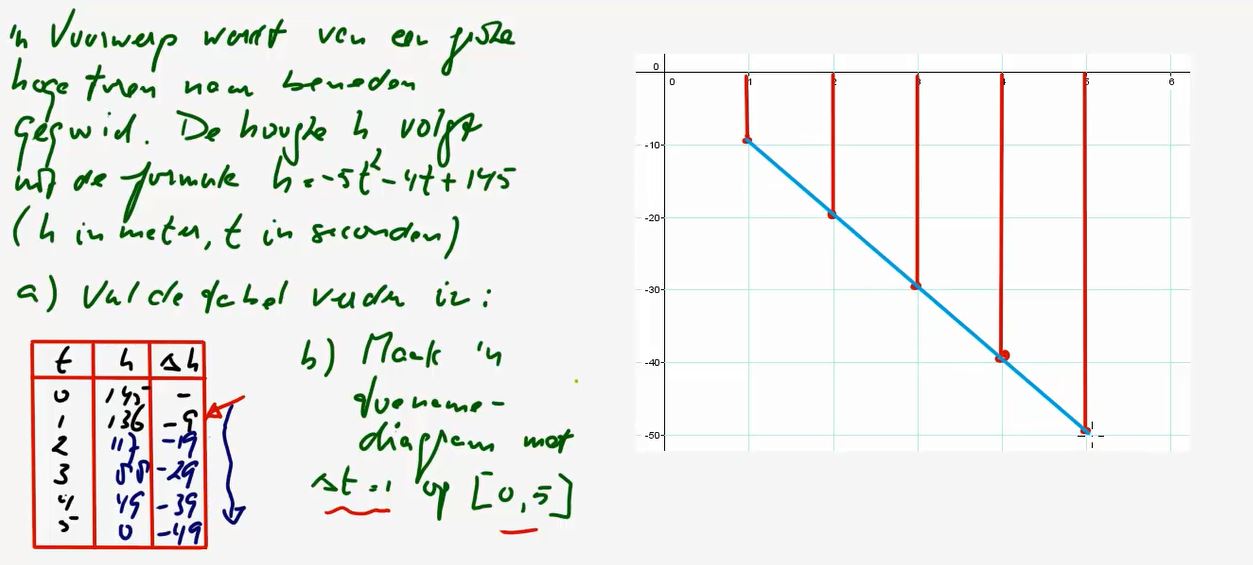 'n Voorwerp wordt van een grote
hoge toren naar beneden
gegooid. De hoogte h volgt
uit de formule h = -5t² - 4t + 145
(h in meter, t in seconden)
a) Vul de tabel verder in:
t h Δh
0 145 -
1 136 -9
2 117 -19
3 88 -29
4 49 -39
5 0 -49
b) Maak 'n
toename-
diagram met
Δt = 1 op [0,5]
0
0 1 2 3 4 5 6
-10
-20
-30
-40
-50